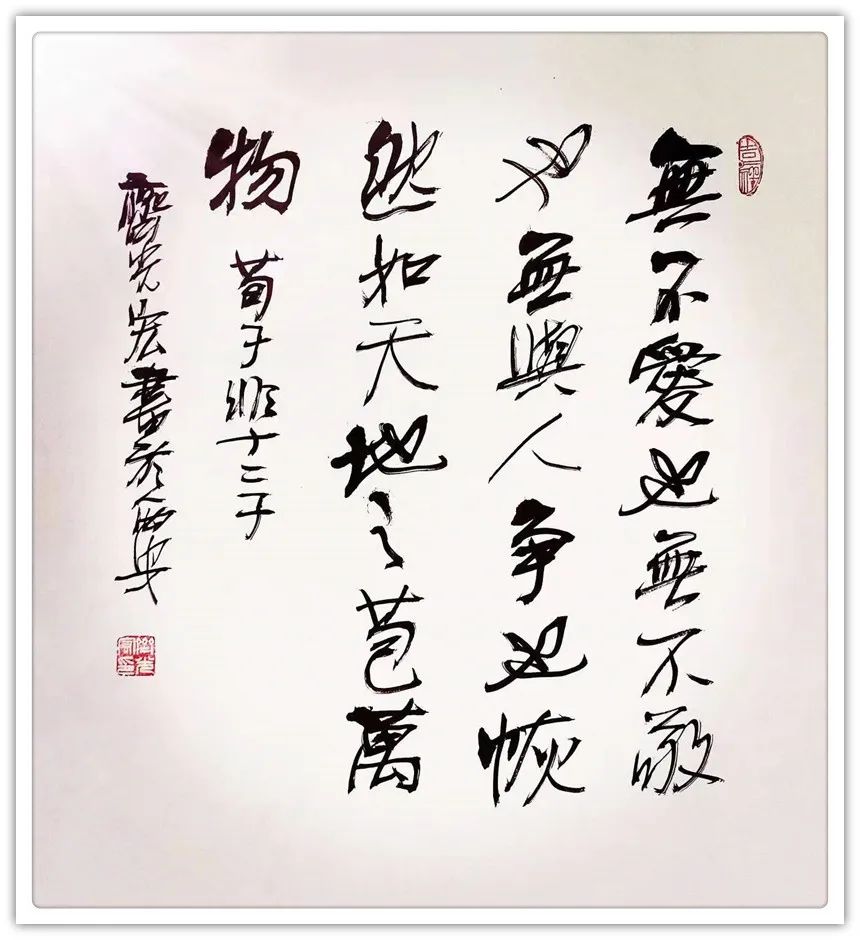 吉祥
無不愛也無不敬
也無與人争也恢
然如天地之苞萬
物 荀子非十二子
光宏書於西安